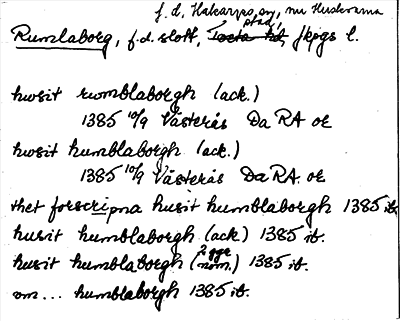 f.d. Hakarps sn, nu Huskvarna
stad,
Rumlaborg, f.d. slott, Tveta hd, Jkpgs l.
hwsit rwmblaborgh (ack.)
1385 10/9 Västerås Da RA or
hwsit humblaborgh (ack.)
1385 10/9 Västerås Da RA. or
thet forscripna husit humblaborgh 1385 ib.
husit humblaborgh (ack) 1385 ib.
2 ggr
husit humblaborgh (nom.) 1385 ib.
om... humblaborgh 1385 ib.